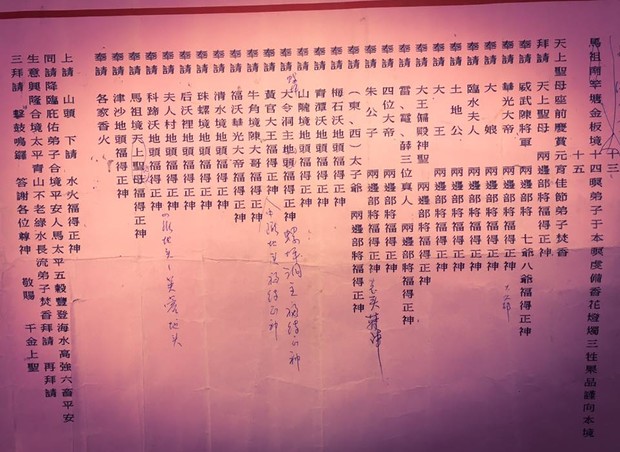 十三
馬祖剛宰壠金板境十四暝弟子于本暝虔備香花燈燭三牲果品謹向本境
十五
天上聖母座前慶賞元宵佳節弟子焚香
拜請 天上聖母 兩邊部將福得正神
奉請 威武陳將軍 兩邊部將 七爺八爺福得正神
奉請 華光大帝 兩邊部將福得正神
奉請 大娘 兩邊部將福得正神
奉請 臨水夫人 兩邊部將福得正神
奉請 土地公 兩邊部將福得正神
奉請 大王 兩邊部將福得正神
奉請 大王偏殿神聖 兩邊部將福得正神
奉請 雷、電、薛三位真人 兩邊部將福得正神
奉請 四位大帝 兩邊部將福得正神
奉請 朱公子 兩邊部將福得正神
奉請 (東、西)太子爺 兩邊部將福得正神
奉請 梅石沃地頭福得正神
奉請 青潭沃地頭福得正神
奉請 山隴境地頭福得正神
奉請 大令洞主地頭福得正神
奉請 黃官大王福得正神
奉請 牛角境陳大哥福得正神
奉請 福沃華光大帝福得正神
奉請 清水境地頭福得正神
奉請 珠螺境地頭福得正神
奉請 后沃裡地頭福得正神
奉請 夫人村地頭福得正神
奉請 科蹄沃地頭福得正神
奉請 馬祖境天上聖母福得正神
奉請 津沙地頭福得正神
奉請 各家香火
上請 山頭 下請 水火福得正神
同請降臨庇佑弟子合境平安人馬太平五穀豐登海水高強六畜平安
生意興隆合境太平青山不老綠水長流弟子焚香拜請 再拜請
三拜請 擊鼓鳴鑼 答謝各位尊神 敬賜 千金上聖